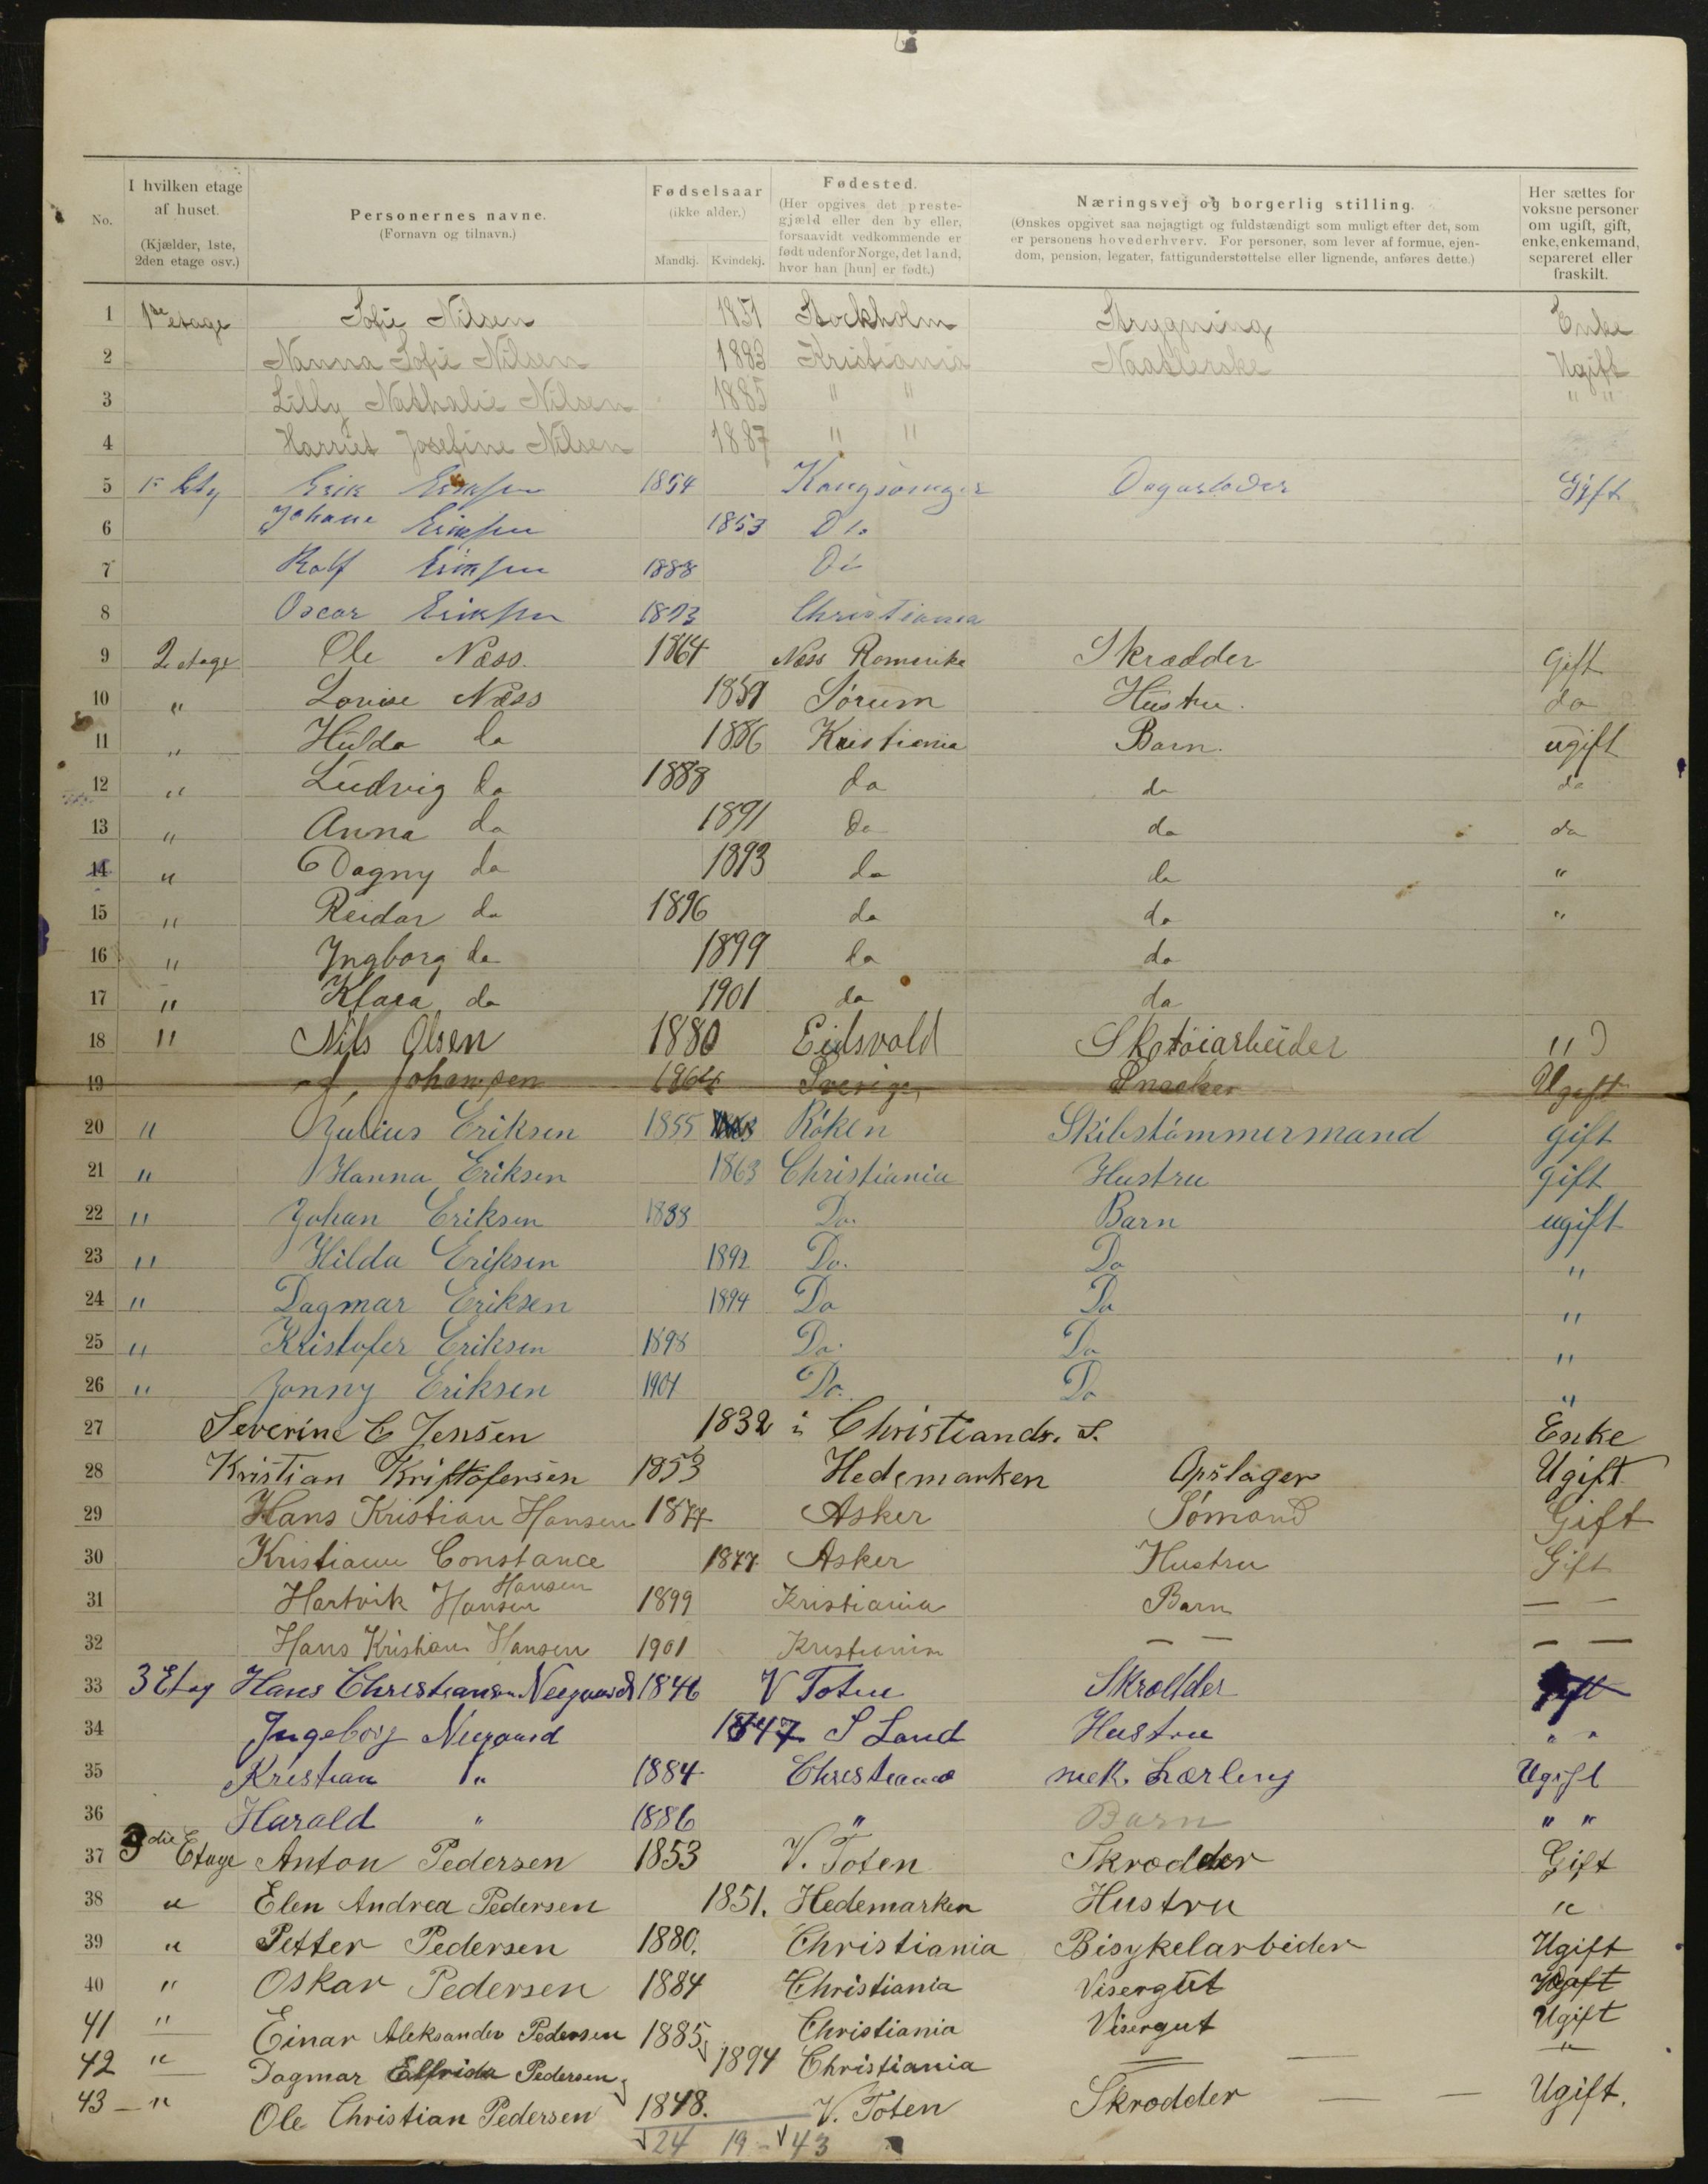 No.
I hvilken etage af huset. (Kjælder, 1ste, 2den etage osv.)
Personernes navne. (Fornavn og tilnavn.)
Fødselsaar (ikke alder.) Mandkj. Kvindekj.
Fødested. (Her opgives det prestegjæld eller den by eller, forsaavidt vedkommende er født udenfor Norge, det land, hvor han [hun] er født.)
Næringsvej og borgerlig stilling. (Ønskes opgivet saa nøjagtigt og fuldstændigt som muligt efter det, som er personens hovederhverv. For personer, som lever af formue, ejendom, pension, legater, fattigunderstøttelse eller lignende, anføres dette.)
Her sættes for voksne personer om ugift, gift, enke, enkemand, separeret eller fraskilt.
1 1ste etage Sofie Nilsen 1851 Stockholm Strygning Enke
2 Nanna Sofie Nilsen 1883 Kristiania Naadlerske Ugift
3 Lilly Nathalie Nilsen 1885 " " " "
4 Harriet Josefine Nilsen 1887 " "
5 Erik Eriksen 1854 Kongsvinger Dagarbeder Gift
6 Johane Eriksen 1853 Do
7 Rolf Eriksen 1888 Do
8 Oscar Eriksen 1893 Christiania
9 2 etage Ole Næss. 1864 Næss Romerike Skrædder Gift
10 " Lovise Næss 1859 Sørum Hustru. do
11 " Hulda do 1886 Kristiania Barn. ugift
12 " Ludvig do 1888 do do do
13 " Anna do 1891 do do do
14 " Dagny do 1893 do do "
15 " Reidar do 1896 do do "
16 " Ingborg do 1899 do do
17 " Klara do 1901 do do
18 " Nils Olsen 1880 Eidsvold Skotøiarbeider "
19 Johansen 1864 Sverige Snecker Ugift
20 " Julius Eriksen 1855 Røken Skibstømmermand gift
21 " Hanna Eriksen 1863 Christiania Hustru gift
22 " Johan Eriksen 1888 Do. Barn ugift
23 " Hilda Eriksen 1892 Do. Do "
24 " Dagmar Eriksen 1894 Do Do "
25 " Kristofer Eriksen 1898 Do. Do "
26 " Jonny Eriksen 1904 Do. Do "
27 Severine C Jensen 1832 i Christiands. S. Enke
28 Kristian Kristofersen 1853 Hedemarken Opslager Ugift
29 Hans Kristian Hansen 1877 Asker Sømand Gift
30 Kristiane Constance Hansen 1877 Asker Hustru Gift
31 Hartvik Hansen 1899 Kristiania Barn — —
32 Hans Kristian Hansen 1901 Kristiania — — — —
33 3 Etag Hans Christiansen Neegaard 1846 V Toten Skrædder Gift
34 Ingeborg Neegaard 1847 S Land Hustru " "
35 Kristian " 1884 Christiania mek. Lærling Ugift
36 Harald " 1886 " Barn " "
37 3die Etage Anton Pedersen 1853 V. Toten Skrædder Gift
38 " Elen Andrea Pedersen 1851. Hedemarken Hustru "
39 " Petter Pedersen 1880. Christiania Bisykelarbeider Ugift
40 " Oskar Pedersen 1884 Christiania Visergut Ugift
41 " Einar Aleksander Pedersen 1885 Christiania Visergut Ugift
42 " Dagmar Elfrida Pedersen 1894 Christiania — — "
43 — " Ole Christian Pedersen 1848. V. Toten Skrædder — — Ugift.
24 19 - 43